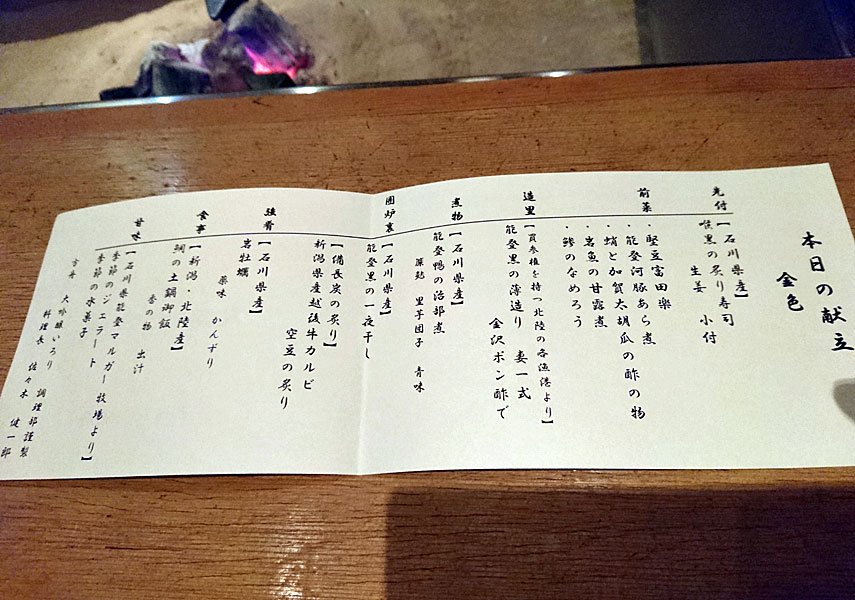 本日の献立
金色
先付
【石川県産】
喉黒の炙り寿司
生姜 小付
前菜
・堅豆富田楽
・能登河豚あら煮
・蛸と加賀太胡瓜の酢の物
・岩魚の甘露煮
・鯵のなめろう
造里
【買参権を持つ北陸の各漁港より】
能登黒の薄造り 妻一式
金沢ポン酢で
煮物
【石川県産】
能登鴨の治部煮
簾麩 里芋団子 青味
囲炉裏
【石川県産】
能登黒の一夜干し
【備長炭の炙り】
新潟県産越後牛カルビ
空豆の炙り
強肴
【石川県産】
岩牡蠣
薬味 かんずり
食事
【新潟・北陸産】
鯛の土鍋御飯
香の物 出汁
甘味
【石川県能登マルガー牧場より】
季節のジェラート
季節の水菓子
方舟 大吟醸いろり 調理部謹製
料理長 佐々木 健一郎